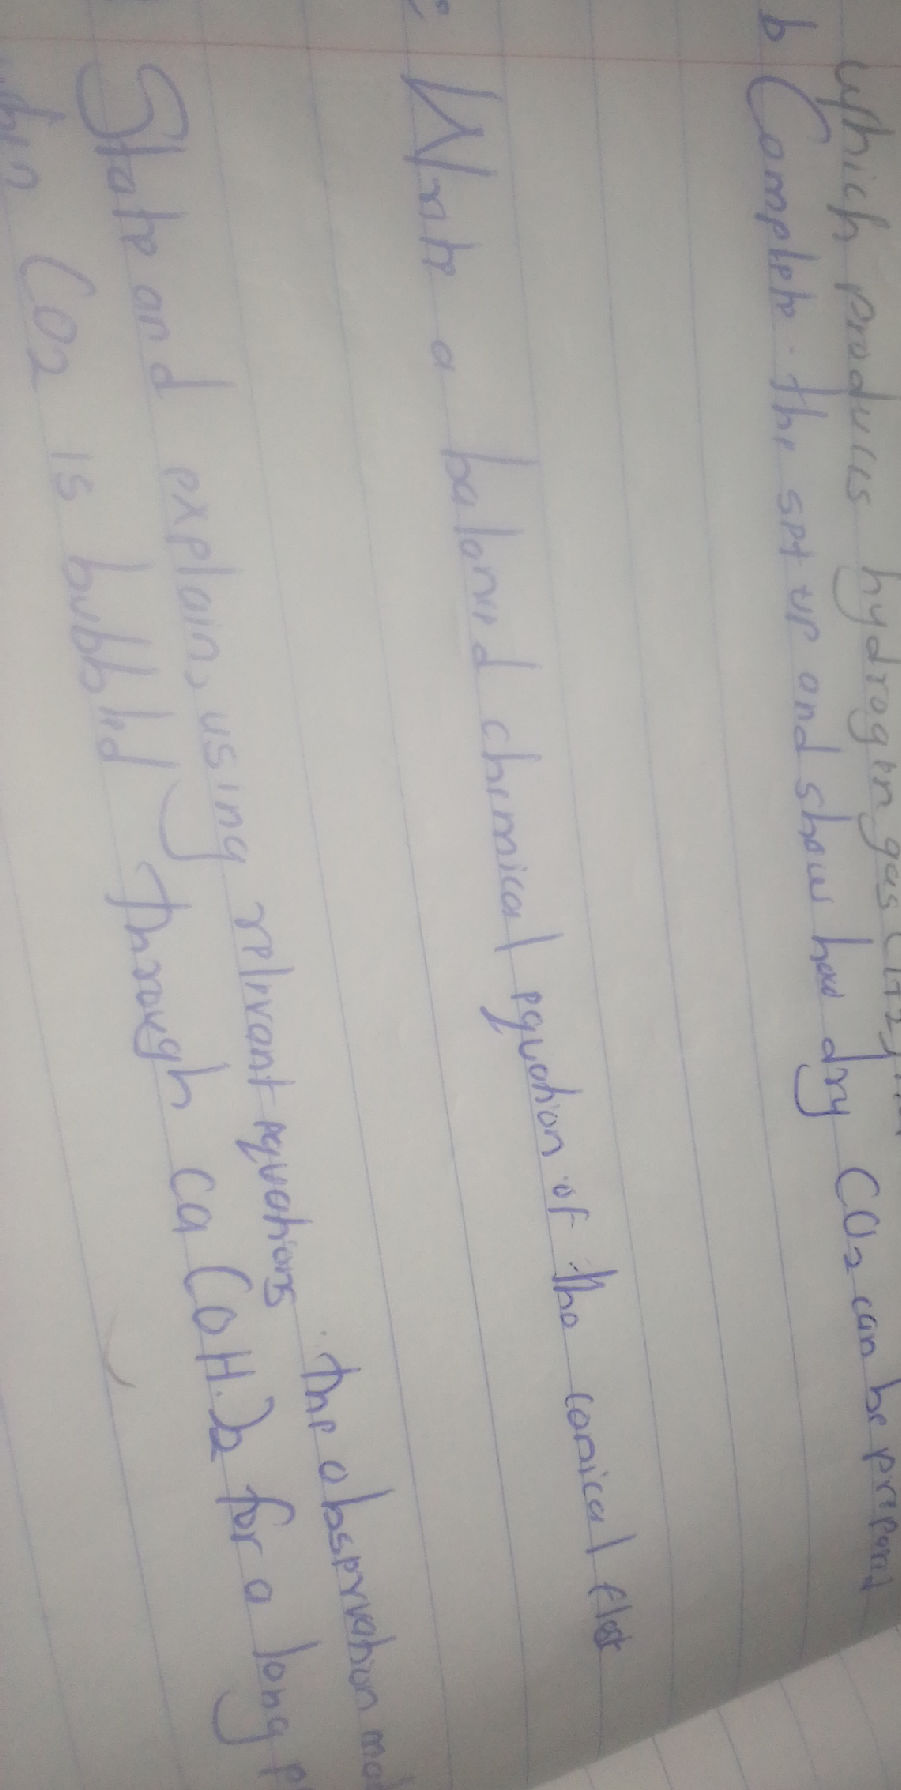 which produces hydrogen gas (H2)
b Complete the set up and show how dry CO2 can be prepared
c Write a balanced chemical equation of the conical flask
State and explain, using relevant equations the observation
when CO2 is bubbled through Ca(OH)2 for a long